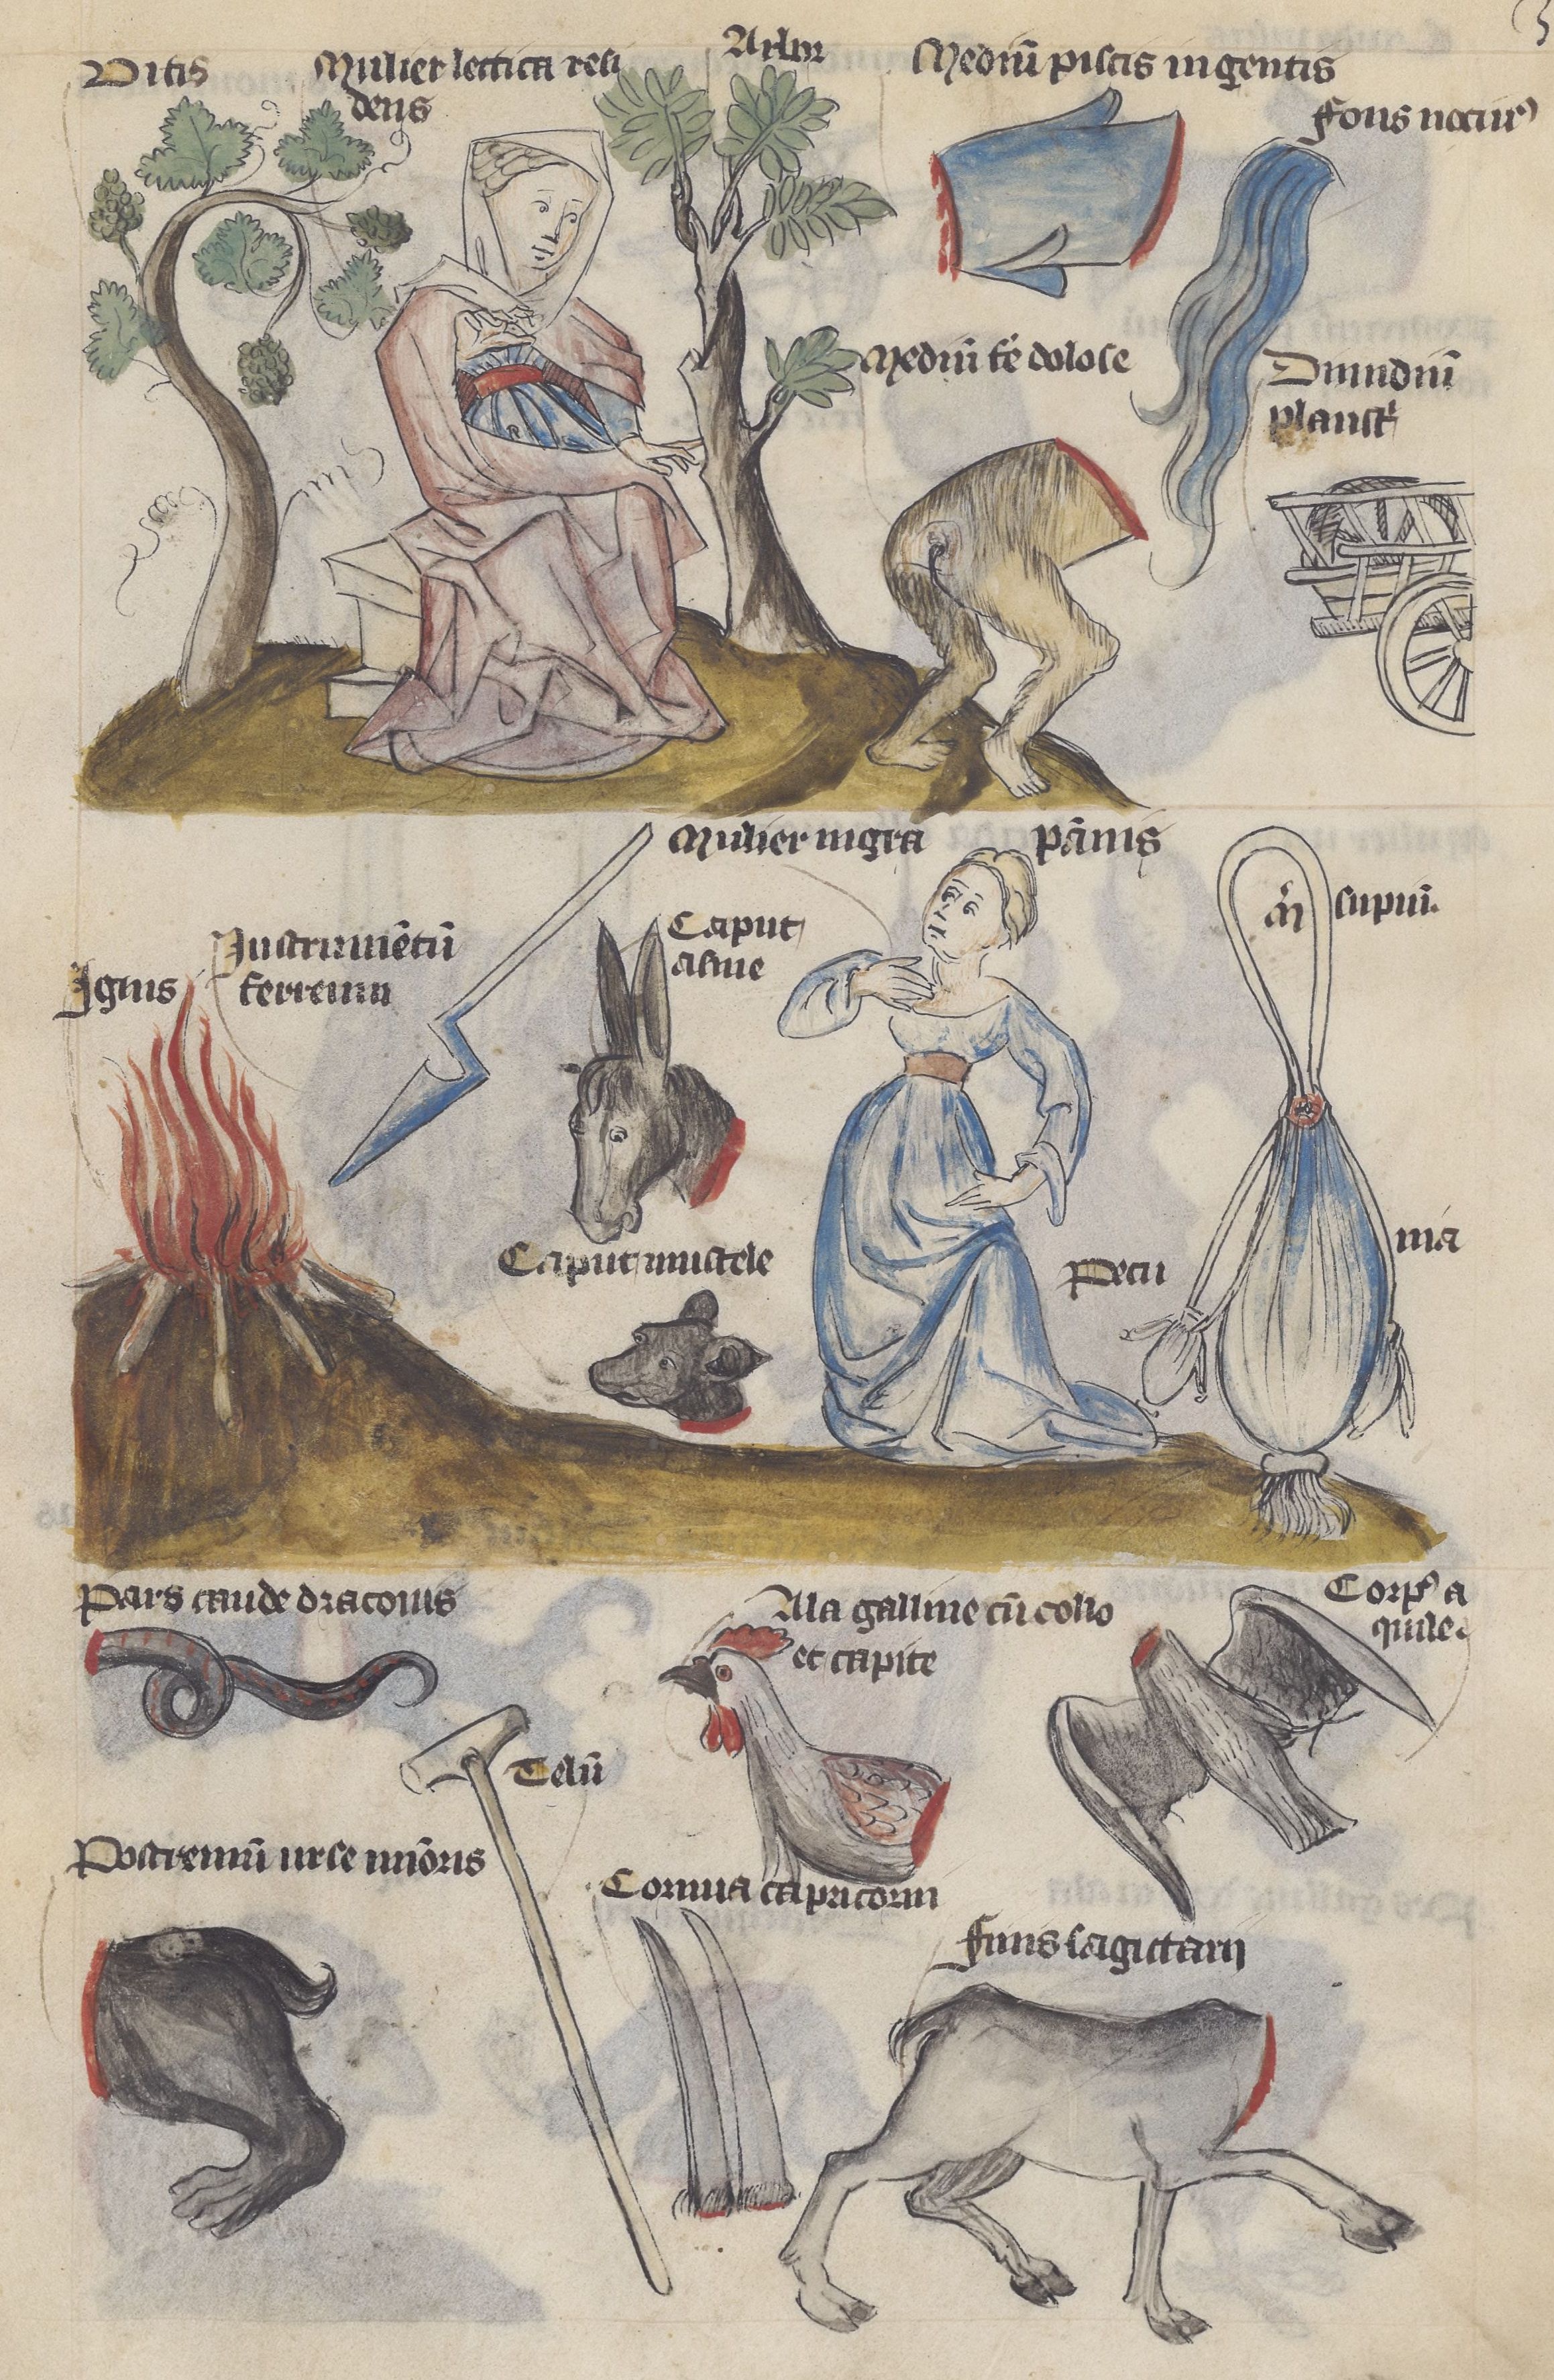 Vitis
Mulier lectica resi
dens
Arbor
Mediū piscis ingentis
Fons
Mediū dolose
Dimidiū
plaustri
Mulier nigra
pānis
supiū.
Instrumētū
ferreum
Caput
asine
Ignis
Caput mustele
Pecu
nia
Pars caude draconis
Ala galline cū collo
et capite
Corpꝰ a
quile.
Telū
Postremū urse miōris
Cornua capricorni
Funis sagittarij